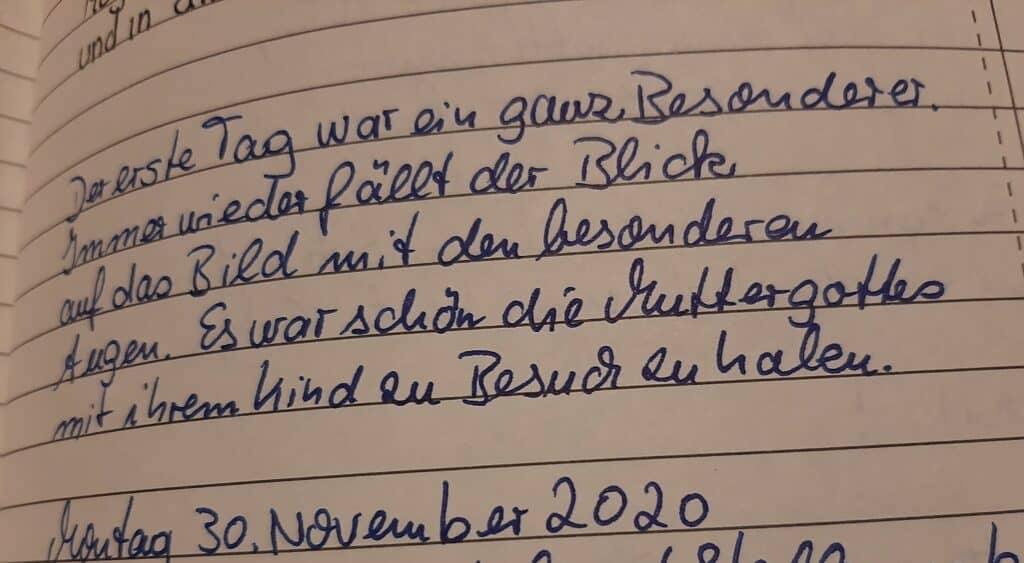 und in
Der erste Tag war ein ganz Besonderer.
Immer wieder fällt der Blick
auf das Bild mit den besonderen
Augen. Es war schön die Muttergottes
mit ihrem Kind zu Besuch zu haben.
Montag 30. November 2020